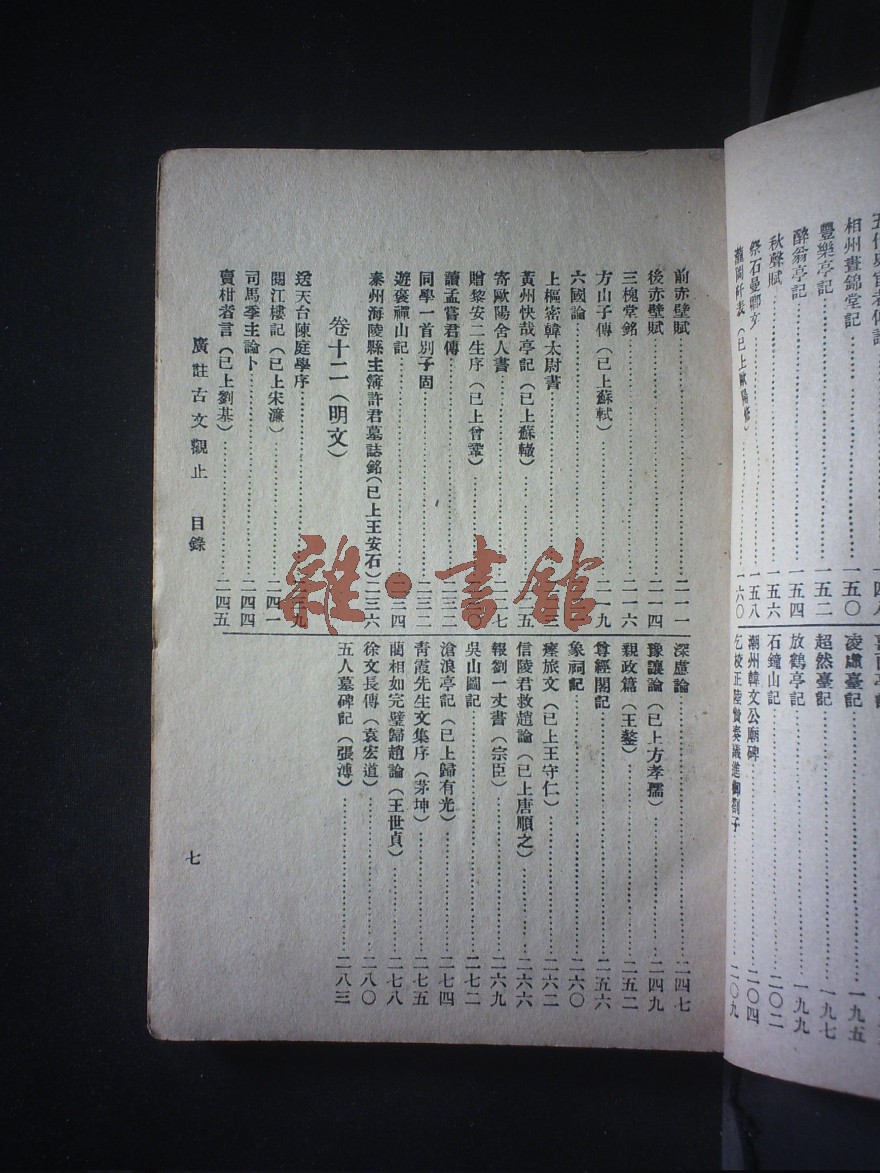 相州晝錦堂記 一五〇
豐樂亭記 一五二
醉翁亭記 一五四
秋聲賦 一五六
祭石曼卿文 一五八
瀧岡阡表（已上歐陽修） 一六〇
喜雨亭記
凌虛臺記 一九五
超然臺記 一九七
放鶴亭記 一九九
石鐘山記 二〇二
潮州韓文公廟碑 二〇四
乞校正陸贄奏議進御劄子 二〇九
前赤壁賦 二一一
後赤壁賦 二一四
三槐堂銘 二一六
方山子傳（已上蘇軾） 二一九
六國論
上樞密韓太尉書 三
黃州快哉亭記（已上蘇轍） 五
寄歐陽舍人書 七
贈黎安二生序（已上曾鞏） 〇
讀孟嘗君傳 二三二
同學一首別子固 二三二
遊褒禪山記 二三四
秦州海陵縣主簿許君墓誌銘（已上王安石） 二三六
卷十二（明文）
送天台陳庭學序 二三九
閱江樓記（已上宋濂） 二四一
司馬季主論卜 二四四
賣柑者言（已上劉基） 二四五
深慮論 二四七
豫讓論（已上方孝孺） 二四九
親政篇（王鏊） 二五二
尊經閣記 二五六
象祠記 二六〇
瘞旅文（已上王守仁） 二六二
信陵君救趙論（已上唐順之） 二六六
報劉一丈書（宗臣） 二六九
吳山圖記 二七二
滄浪亭記（已上歸有光） 二七四
青霞先生文集序（茅坤） 二七五
藺相如完璧歸趙論（王世貞） 二七八
徐文長傳（袁宏道） 二八〇
五人墓碑記（張溥） 二八三
廣註古文觀止 目錄
七
雜·書館